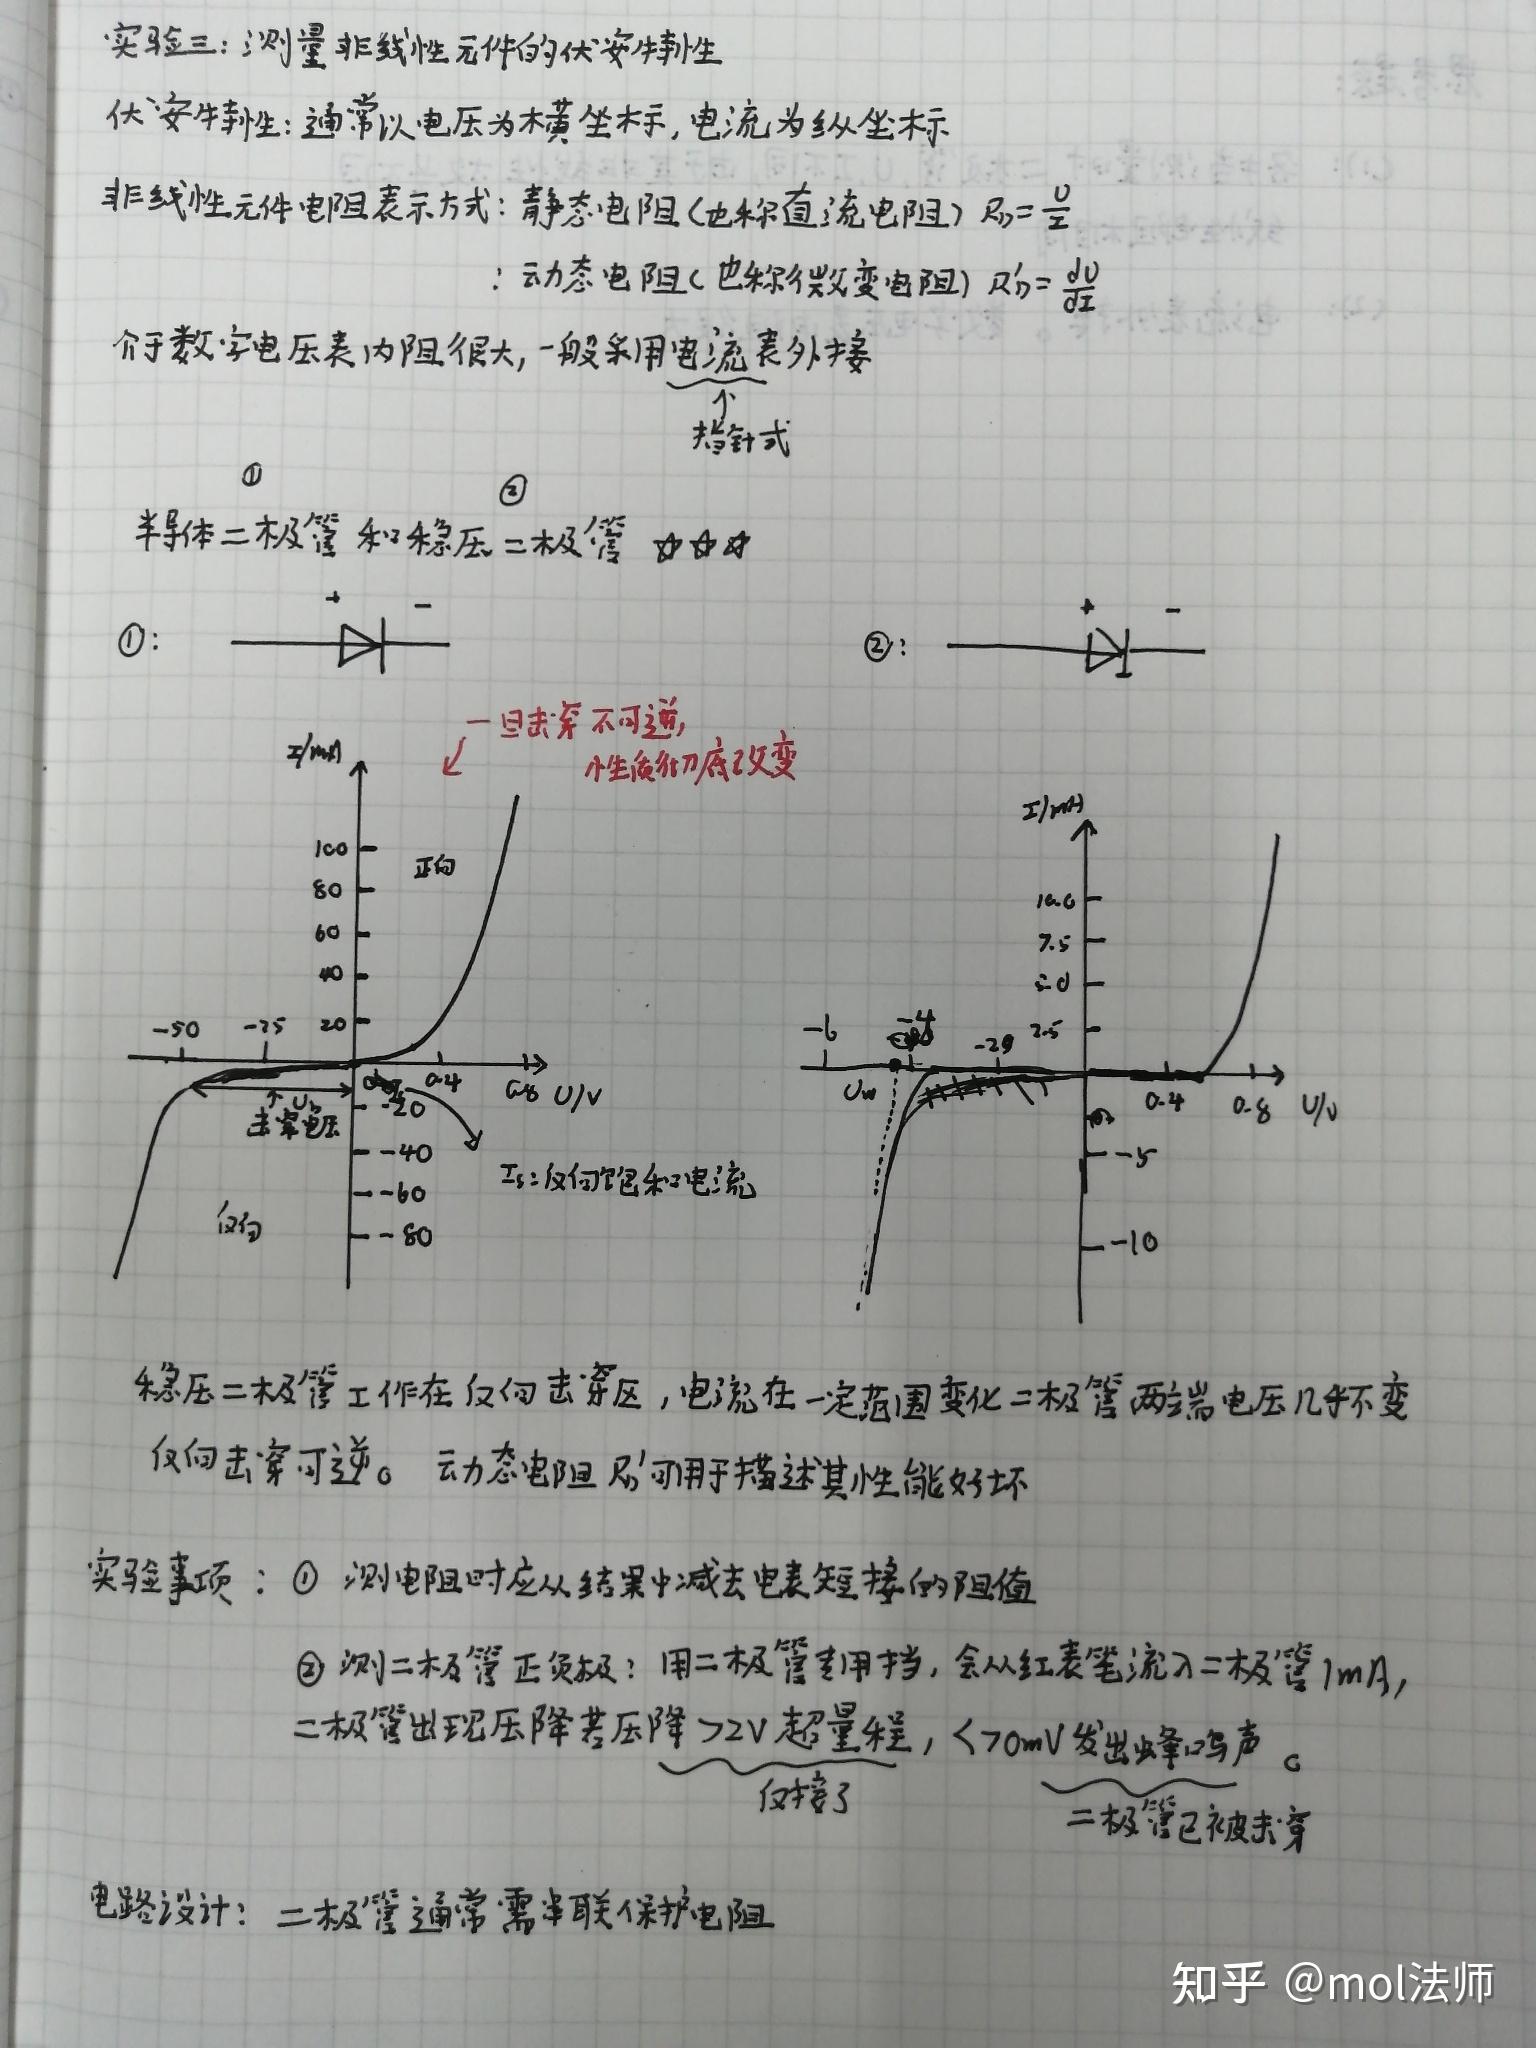 实验三：测量非线性元件的伏安特性
伏安特性：通常以电压为横坐标，电流为纵坐标
非线性元件电阻表示方式：静态电阻（也称直流电阻）R_D=U/I
：动态电阻（也称微变电阻）R'_D=dU/dI
介于数字电压表内阻很大，一般采用电流表外接
↑
指针式
① ②
半导体二极管和稳压二极管 ☆☆☆
①： + −
②： + −
一旦击穿不可逆，
性质彻底改变
I/mA
正向
100
80
60
40
20
-50 -25
0.4 0.8 U/V
-20
-40
-60
-80
↑ U_b
击穿电压
I_s：反向饱和电流
反向
I/mA
10.0
7.5
5.0
2.5
-6 -4 -2
U_w
0.4 0.8 U/V
-5
-10
稳压二极管工作在反向击穿区，电流在一定范围变化二极管两端电压几乎不变
反向击穿可逆。动态电阻R_D'可用于描述其性能好坏
实验事项：① 测电阻时应从结果中减去电表短接的阻值
② 测二极管正负极：用二极管专用挡，会从红表笔流入二极管1mA，
二极管出现压降若压降>2V超量程，<70mV发出蜂鸣声。
反接了
二极管已被击穿
电路设计：二极管通常需串联保护电阻
知乎 @mol法师